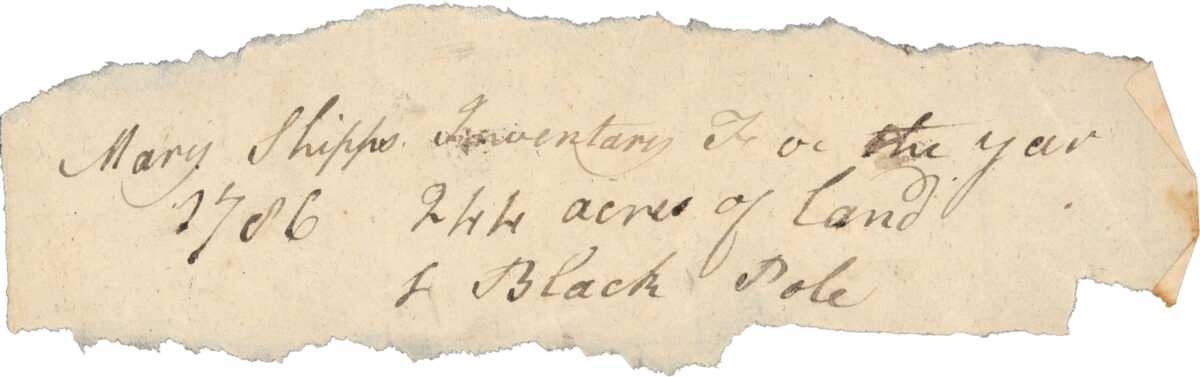 Mary Shipps Inventary For the year
1786 244 acres of land
1 Black Pole